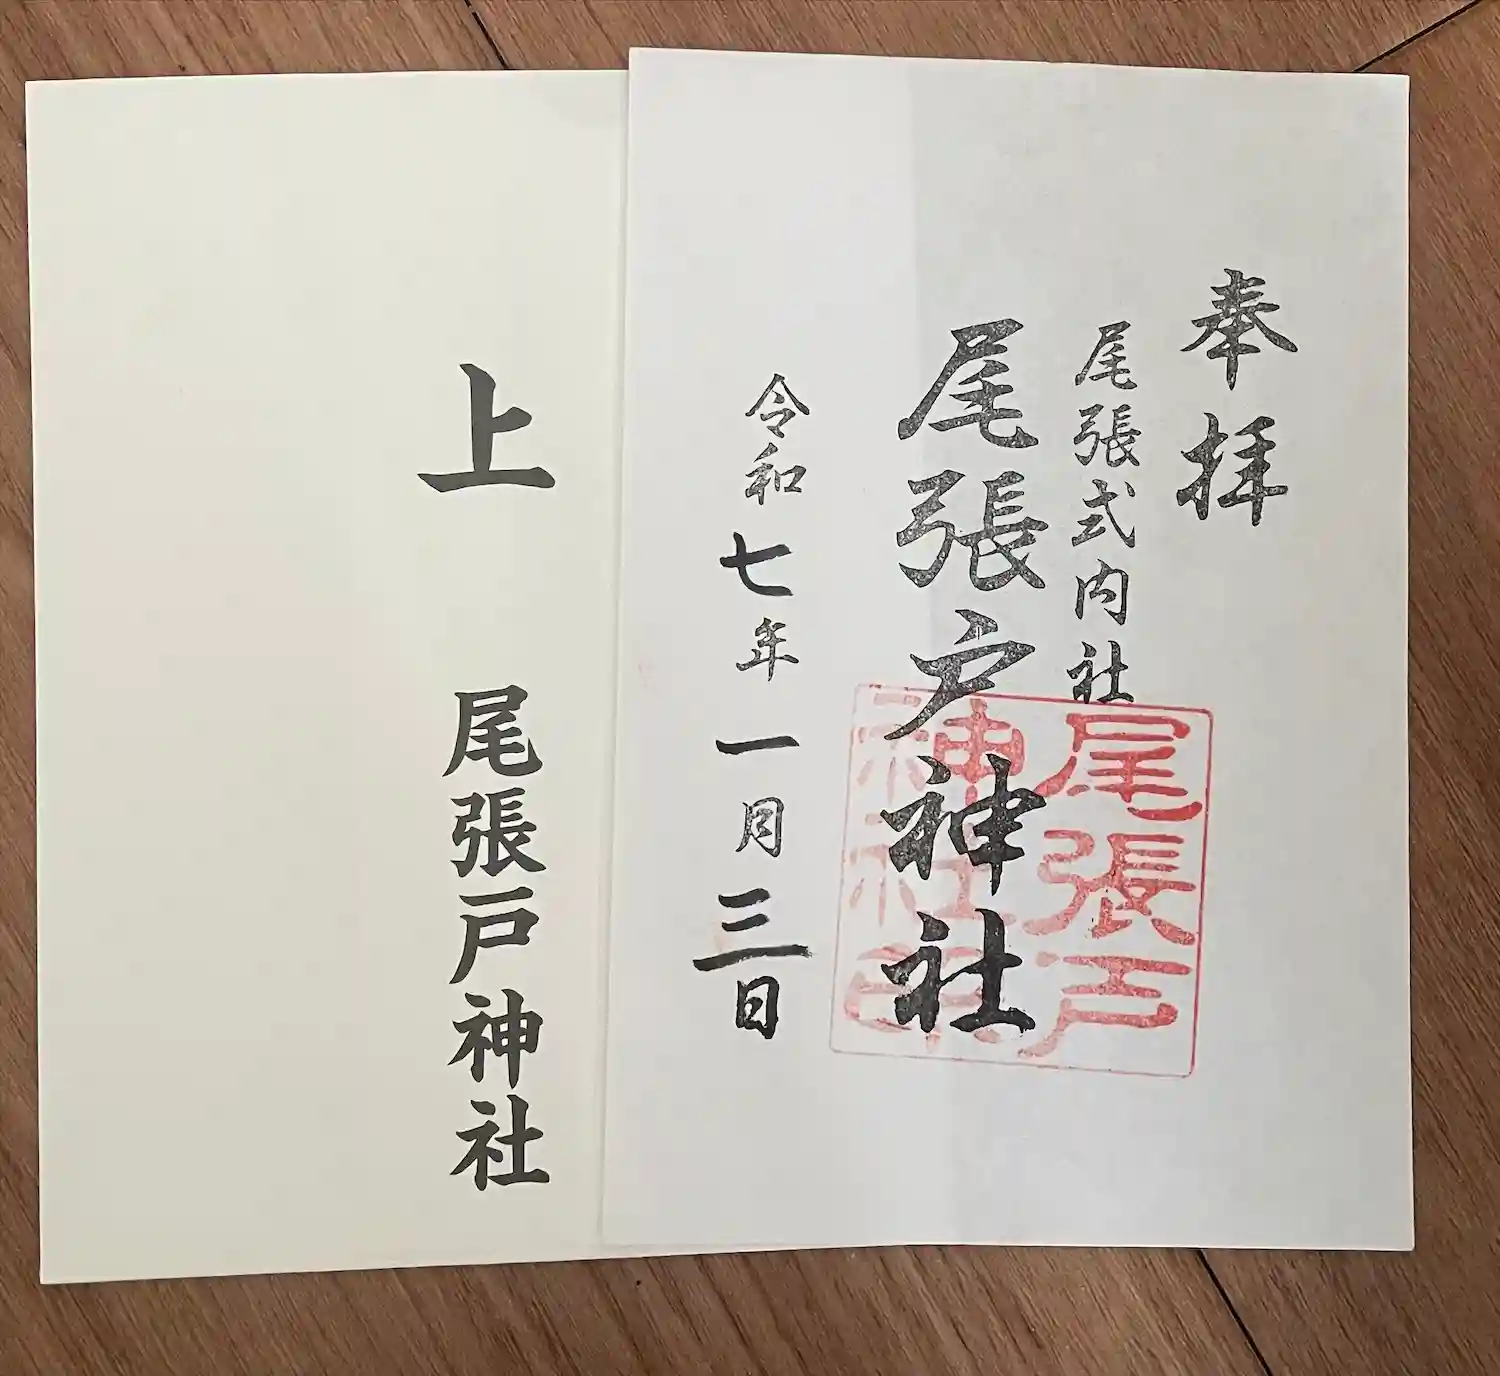 奉拝
尾張式内社
尾張戸神社
令和七年一月三日
尾張戸
神社印
上 尾張戸神社